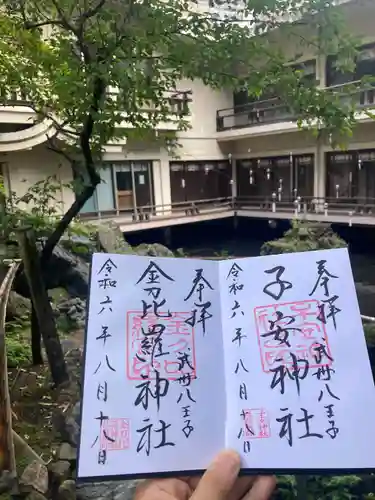 奉拝
武州八王子
子安神社
令和六年八月十八日
奉拝
武州八王子
金比羅神社
令和六年八月十八日